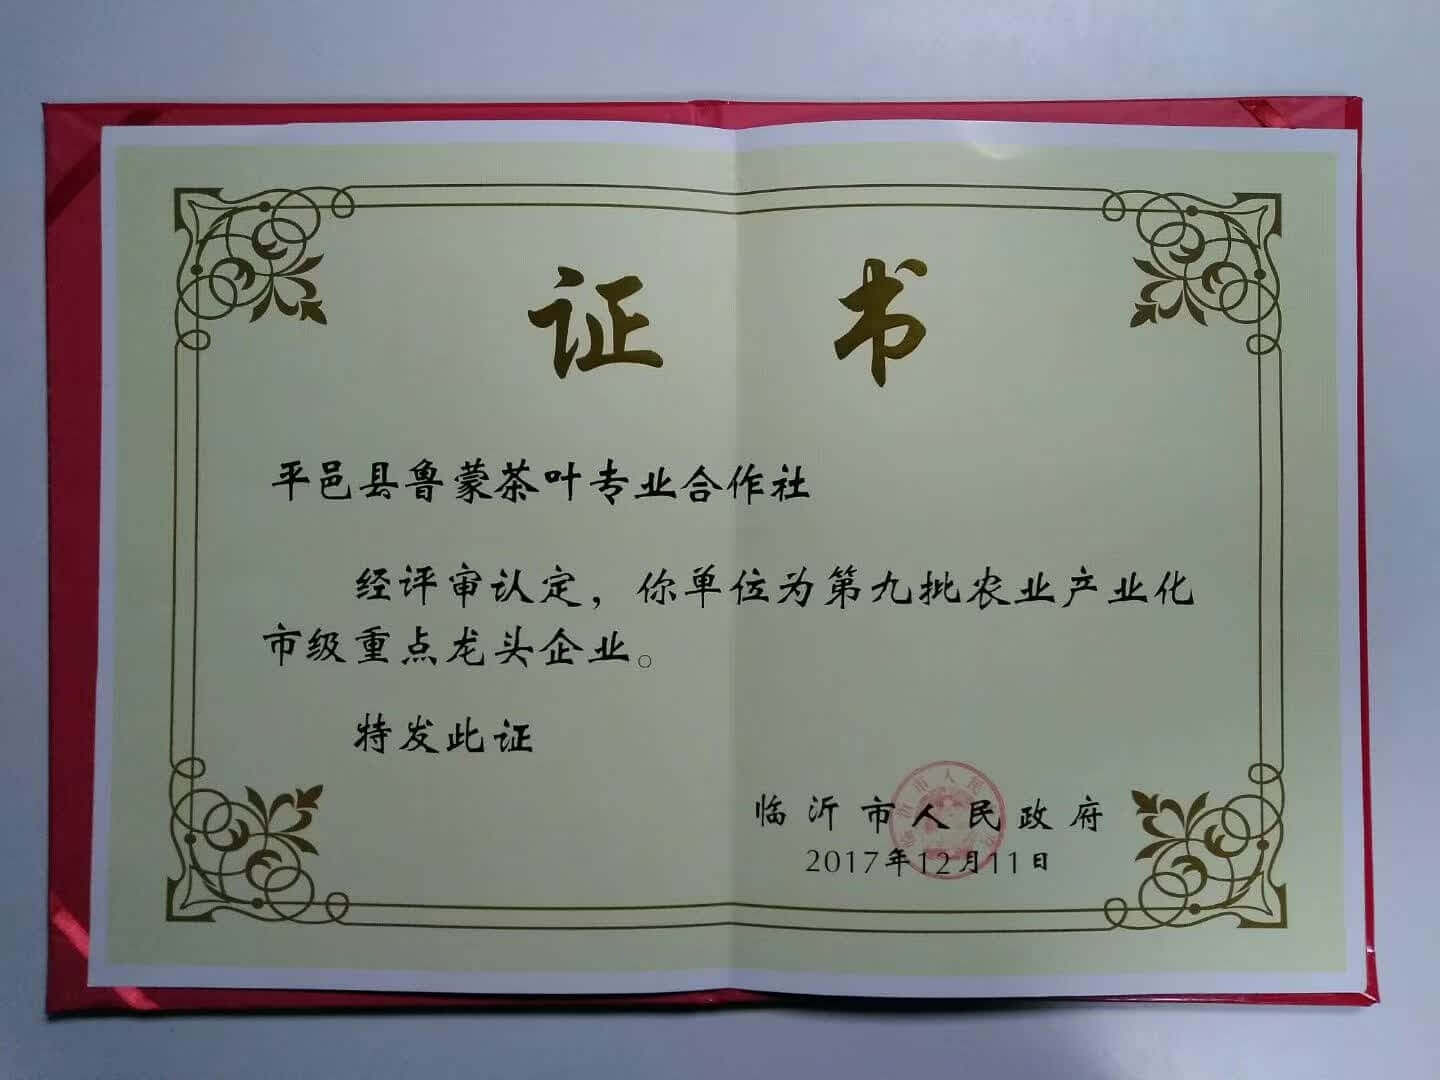 证书
平邑县鲁蒙茶叶专业合作社
经评审认定，你单位为第九批农业产业化
市级重点龙头企业。
特发此证
临沂市人民政府
2017年12月11日